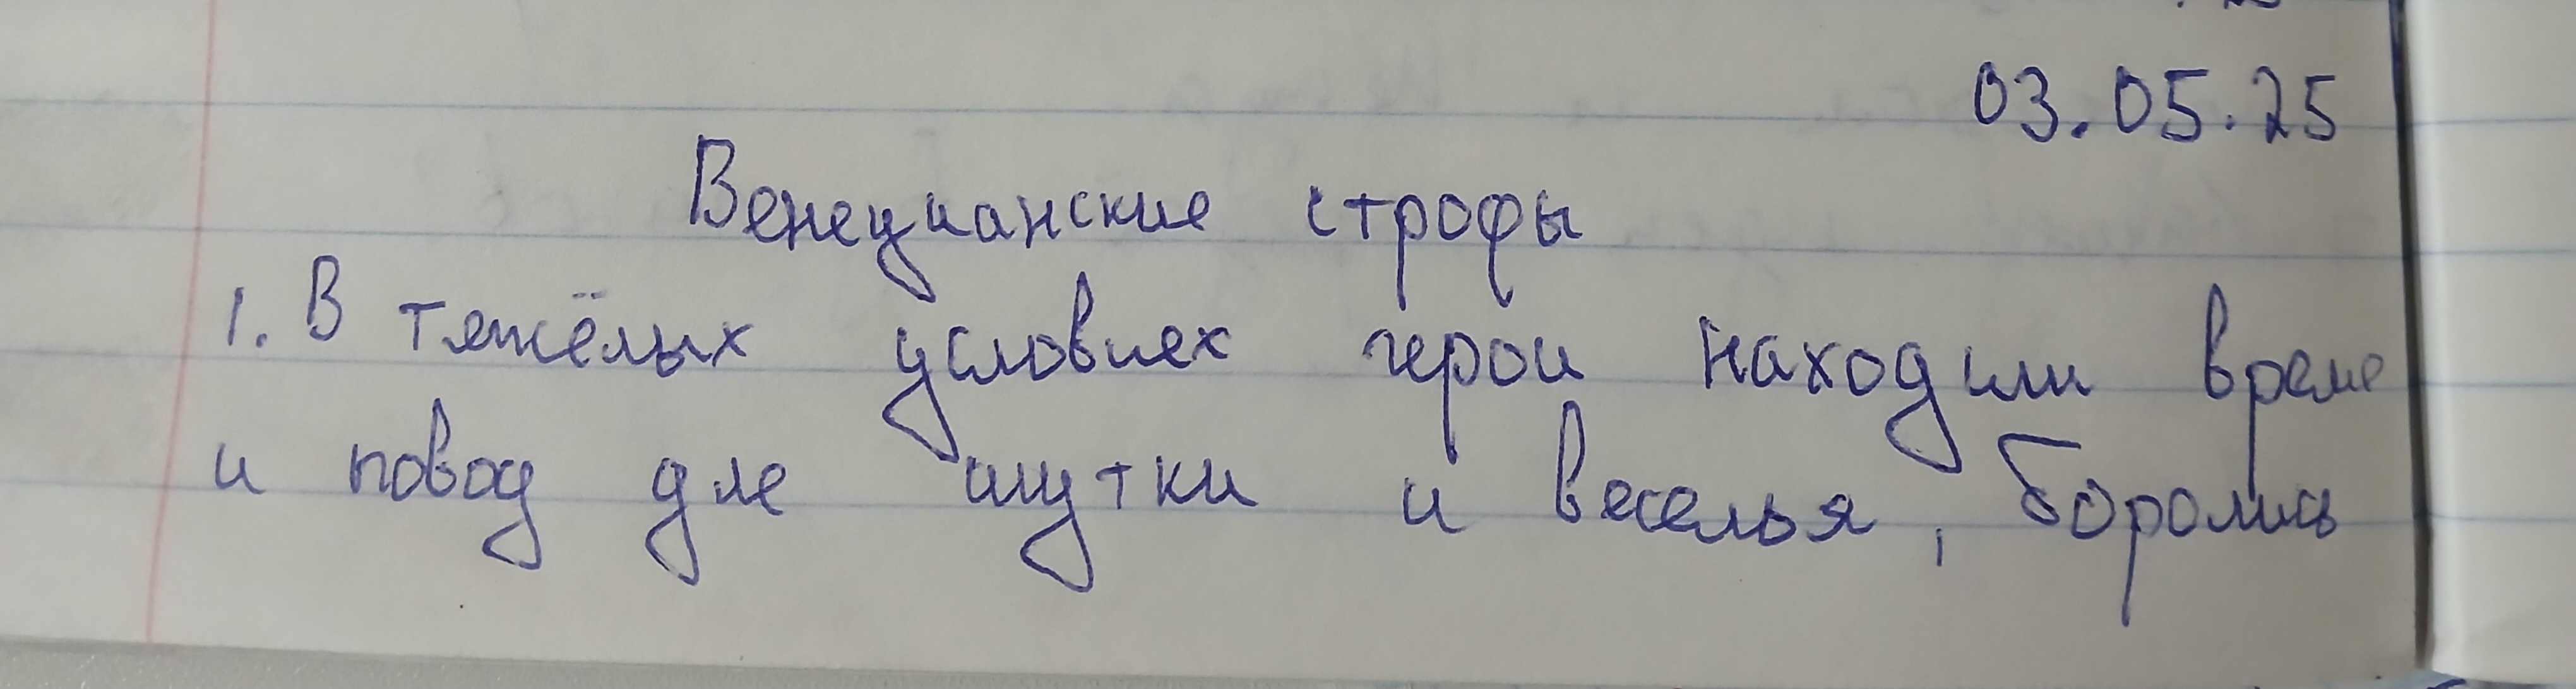 03.05.25
Венецианские строфы
1. В тяжёлых условиях герои находили время
и повод для шутки и веселья, боролись